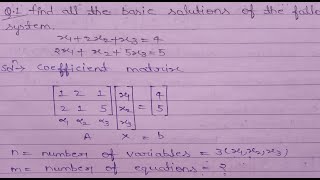 Q.1 find all the basic solutions of the follo
system.
x₁+2x₂+x₃=4
2x₁+x₂+5x₃=5
Solⁿ→ coefficient matrix
[1 2 1] [x₁] = [4]
[2 1 5] [x₂] [5]
α₁ α₂ α₃ [x₃]
A x = b
n = number of variables = 3(x₁,x₂,x₃)
m = number of equations = 2